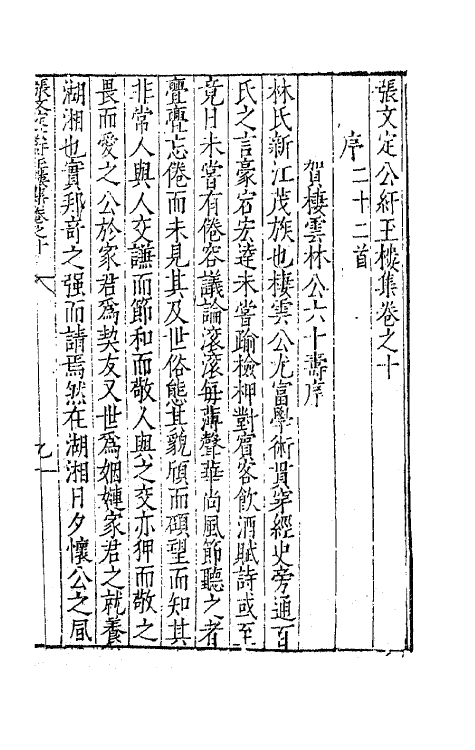 張文定公紆玉樓集卷之十
序 二十二首
賀棲雲林公六十壽序
林氏新江茂族也棲雲公尤富學術貫穿經史旁通百
氏之言豪宕宏達未嘗踰檢柙對賓客飲酒賦詩或至
竟日未嘗有倦容議論滚滚每薄聲華尚風節聽之者
亹亹忘倦而未見其及世俗態其貌頎而碩望而知其
非常人與人交謙而節和而敬人與之交亦狎而敬之
畏而愛之公於家君爲契友又世爲姻婕家君之就養
湖湘也實邦竒之强而請焉然在湖湘日夕懷公之風
張文定公紆玉樓集卷之十